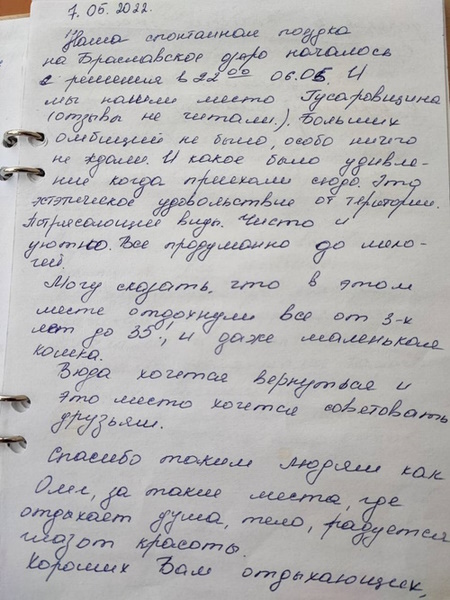 7.06.2022.
Наша спонтанная поздка
на Браславское озеро началось
с решения в 22 00 06.06. И
мы нашли место Гусаровщина
(отзывы не читали.). Больших
омбиций не было, особо ничего
не ждали. И какое было удивле-
ние когда приехали сюда. Это
эстетическое удовольствие от територии.
Потрясающие виды. Чисто и
уютно. Все продуманно до мело-
чей.
Могу сказать, что в этом
месте отдохнули все от 3-х
лет до 35, и даже маленькая
кошка.
Сюда хочется вернуться и
это место хочется советовать
друзьям.
Спасибо таким людям как
Олег, за такие места, где
отдыхает душа, тело, радуется
глаз от красоты.
Хороших Вам отдыхающих,